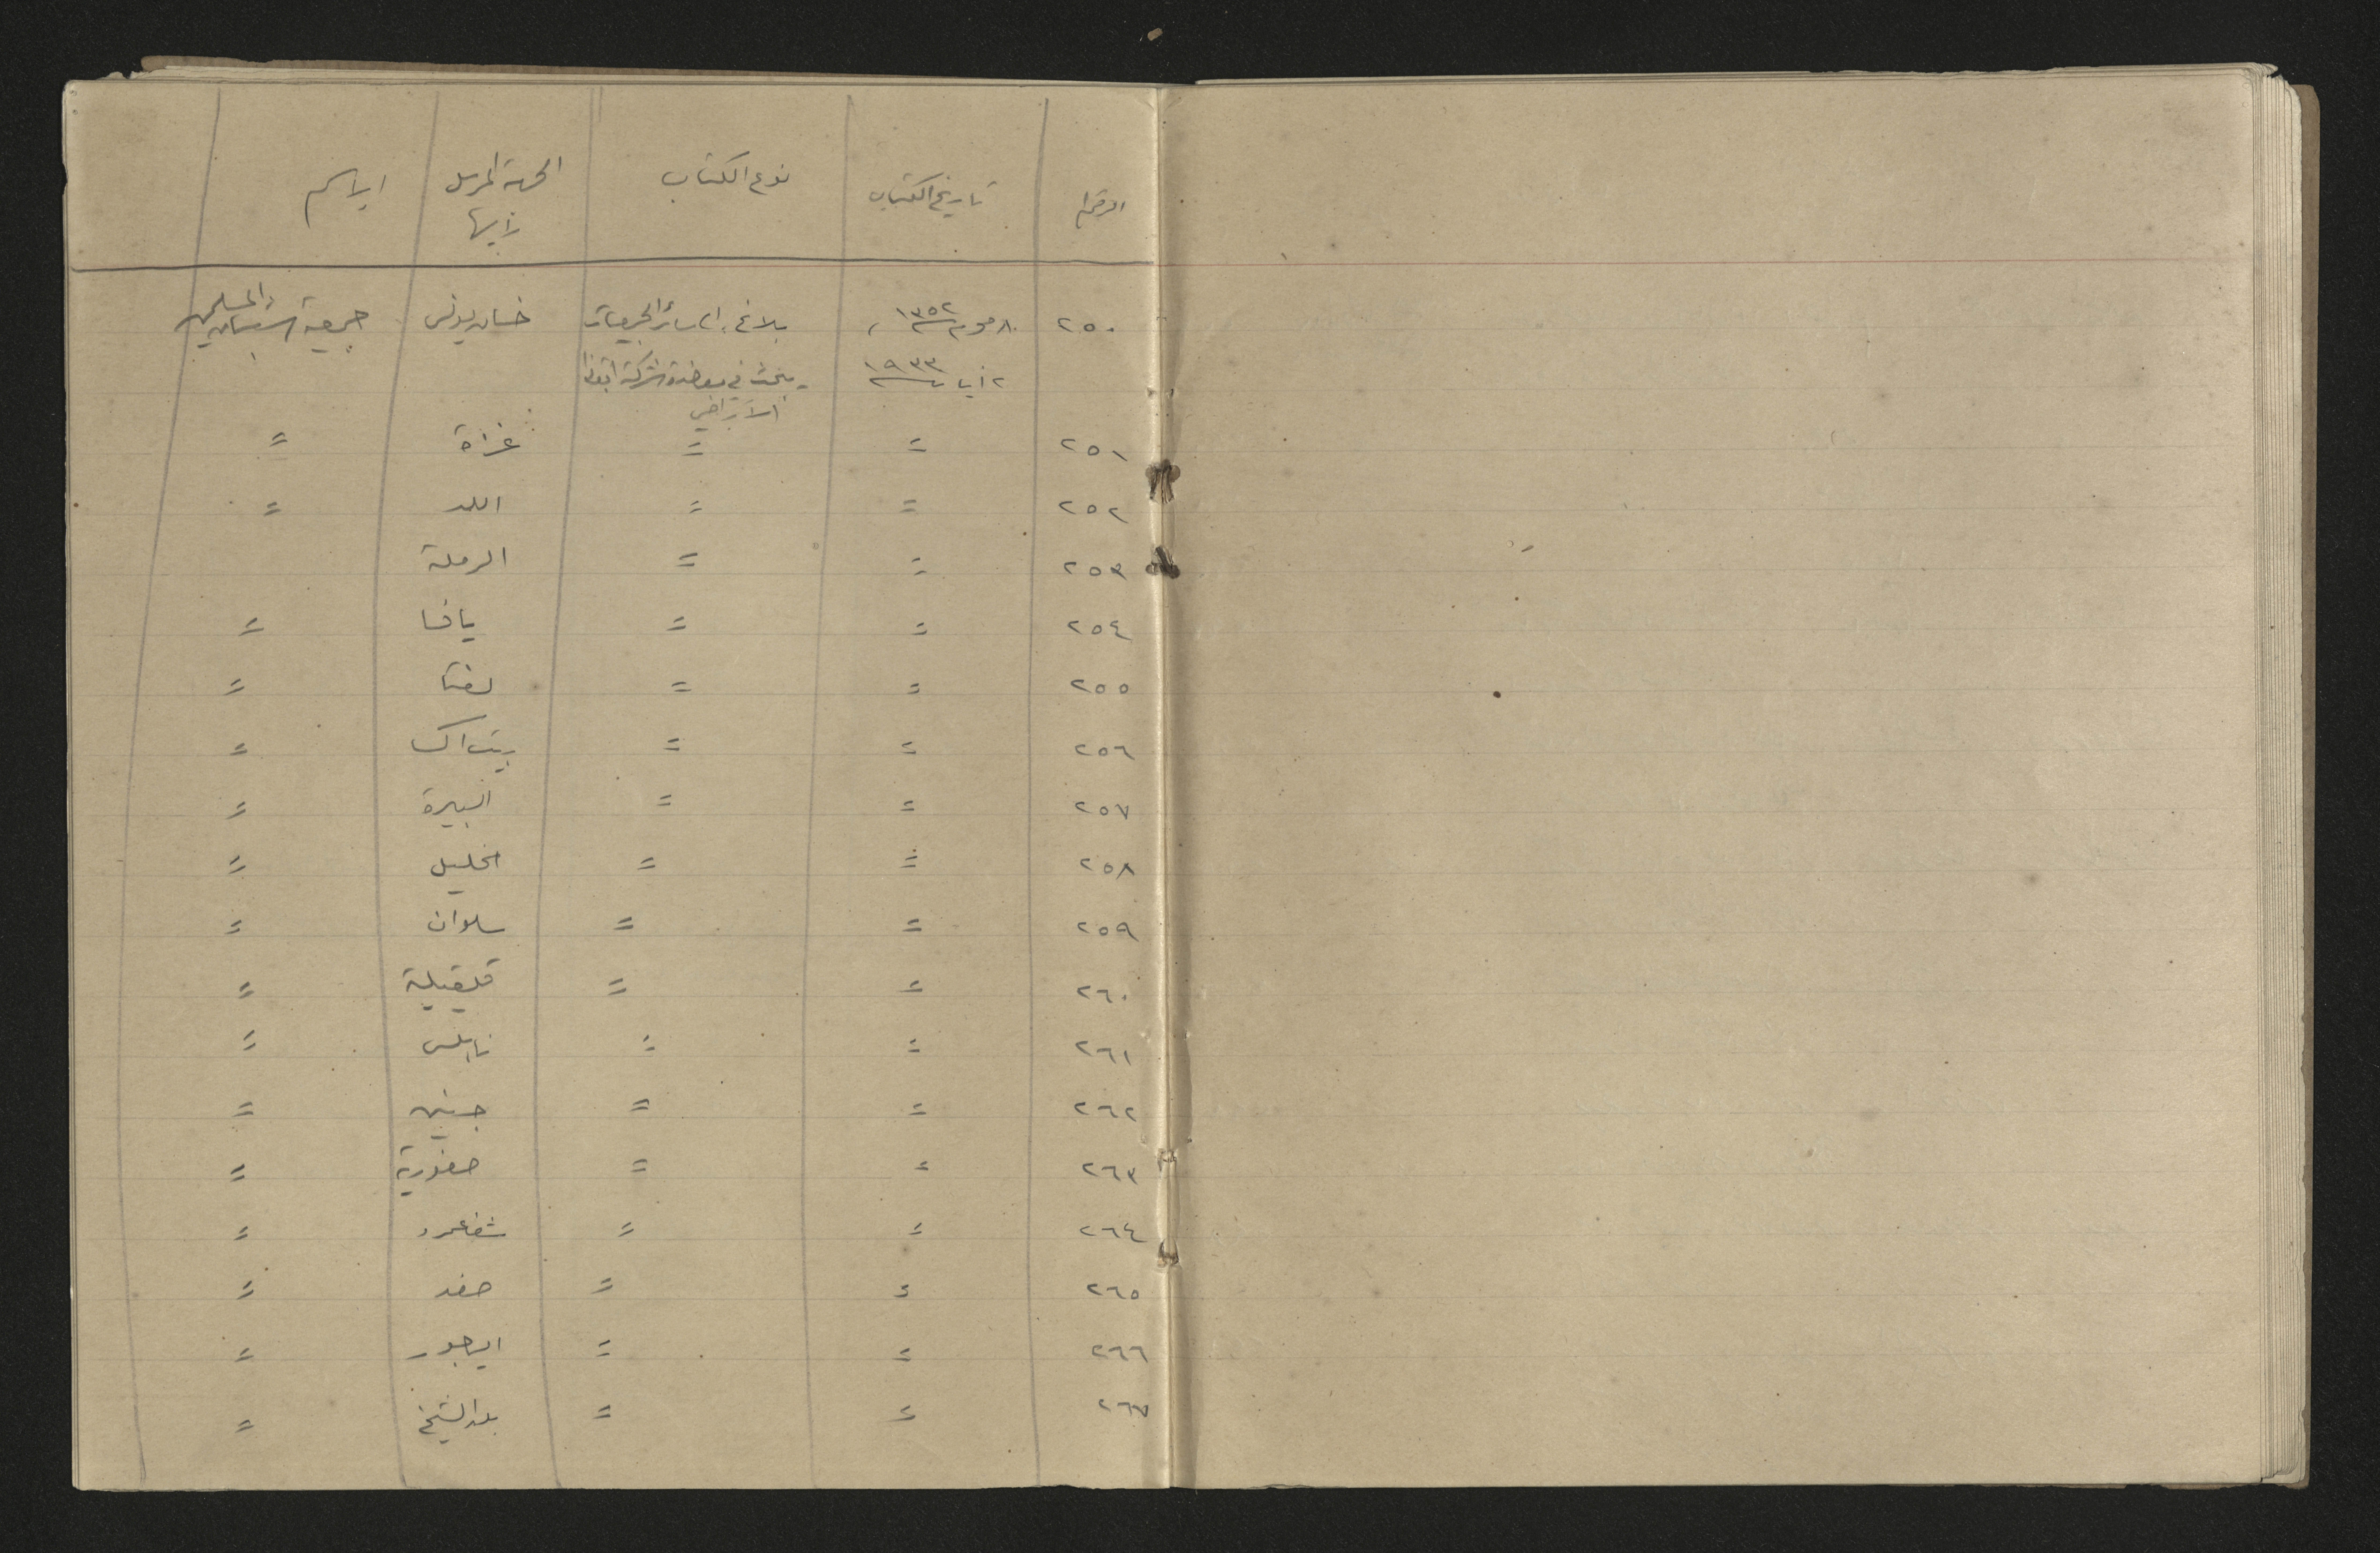 الرقم تاريخ الكتاب نوع الكتاب الجهة المرسل إليها الاسم
٢٥٠ ٨ محرم ١٣٥٢، بلاغ الى سائر الجمعيات خان يونس جمعية الشبان المسلمين
٢ أيار ١٩٣٣ يبحث في معاضدة شركة انقاذ
الأراضي
٢٥١ = = غزة =
٢٥٢ = = اللد =
٢٥٣ = = الرملة
٢٥٤ = = يافا =
٢٥٥ = = لفتا =
٢٥٦ = = بيت اكسا =
٢٥٧ = = البيرة =
٢٥٨ = = الخليل =
٢٥٩ = = سلوان =
٢٦٠ = = قلقيلية =
٢٦١ = = نابلس =
٢٦٢ = = جنين =
٢٦٣ = = صفورية =
٢٦٤ = = شفاعمرو =
٢٦٥ = = صفد =
٢٦٦ = = الياجور =
٢٦٧ = = بلد الشيخ =